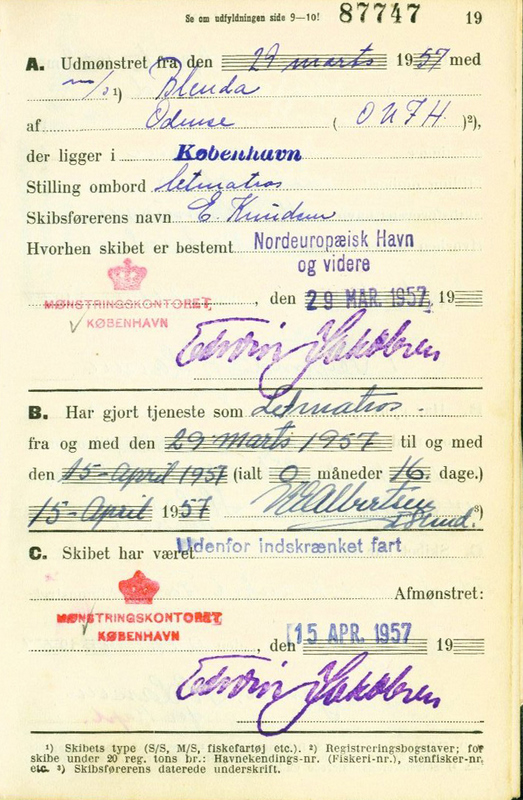 Se om udfyldningen side 9—10! 87747 19
A. Udmønstret fra den 29 marts 1957 med
m/s ¹) Blenda
af Odense ( OUFH. )²),
der ligger i København
Stilling ombord letmatros
Skibsførerens navn E. Knudsen
Hvorhen skibet er bestemt Nordeuropæisk Havn
og videre
MØNSTRINGSKONTORET
KØBENHAVN
, den 29 MAR. 1957, 19
Edwin Jakobsen
B. Har gjort tjeneste som Letmatros.
fra og med den 29 marts 1957 til og med
den 15-April 1957 (ialt 0 måneder 16 dage.)
15-April 1957 Albertsen ³)
C. Skibet har været Udenfor indskrænket fart
Afmønstret:
MØNSTRINGSKONTORET
KØBENHAVN
, den 15 APR. 1957 19
Edwin Jakobsen
¹) Skibets type (S/S, M/S, fiskefartøj etc.). ²) Registreringsbogstaver; for
skibe under 20 reg. tons br.: Havnekendings-nr. (Fiskeri-nr.), stenfisker-nr.
etc. ³) Skibsførerens daterede underskrift.